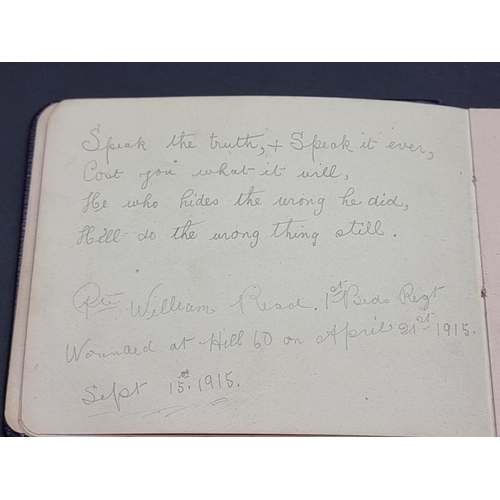 Speak the truth, + Speak it ever,
Cost you what it will,
He who hides the wrong he did,
He'll do the wrong thing still.
Pte William Read. 1st Beds Regt
Wounded at Hill 60 on April 21st 1915.
Sept 15th. 1915.